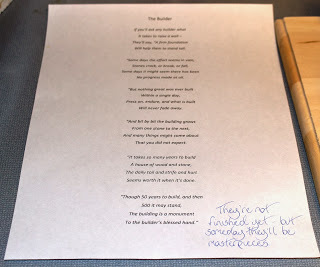 The Builder
If you'll ask any builder what
It takes to make it well –
They'll say, "A firm foundation
Will help them to stand tall.
"Some days the effort seems in vain,
Stones crack, or break, or fall.
Some days it might seem there has been
No progress made at all.
"But nothing great was ever built
Within a single day,
Press on, endure, and what is built
Will never fade away.
"And bit by bit the building grows
From one stone to the next,
And many things might come about
That you did not expect.
"It takes so many years to build
A house of wood and stone,
The daily toil and strife and hurt
Seems worth it when it's done.
"Though 50 years to build, and then
500 it may stand,
The building is a monument
To the builder's blessed hand."
They're not
finished yet - but
someday they'll be
masterpieces